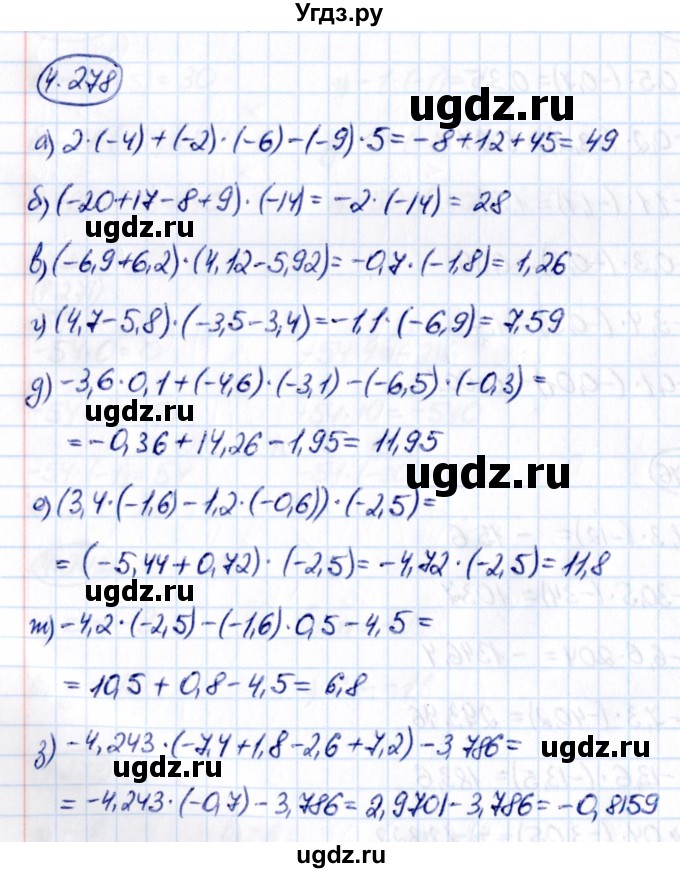 Угдз.ру
4.278
ugdz.ru
а) 2·(-4)+(-2)·(-6)-(-9)·5=-8+12+45=49
б) (-20+17-8+9)·(-14)=-2·(-14)=28
ugdz.ru
в) (-6,9+6,2)·(4,12-5,92)=-0,7·(-1,8)=1,26
г) (4,7-5,8)·(-3,5-3,4)=-1,1·(-6,9)=7,59
д) -3,6·0,1+(-4,6)·(-3,1)-(-6,5)·(-0,3)=
ugdz.ru
=-0,36+14,26-1,95=11,95
ugdz.ru
е) (3,4·(-1,6)-1,2·(-0,6))·(-2,5)=
=(-5,44+0,72)·(-2,5)=-4,72·(-2,5)=11,8
ugdz.ru
ж) -4,2·(-2,5)-(-1,6)·0,5-4,5=
=10,5+0,8-4,5=6,8
з) -4,243·(-7,4+1,8-2,6+7,2)-3,786=
ugdz.ru
ugdz.ru
=-4,243·(-0,7)-3,786=2,9701-3,786=-0,8159
ugdz.ru